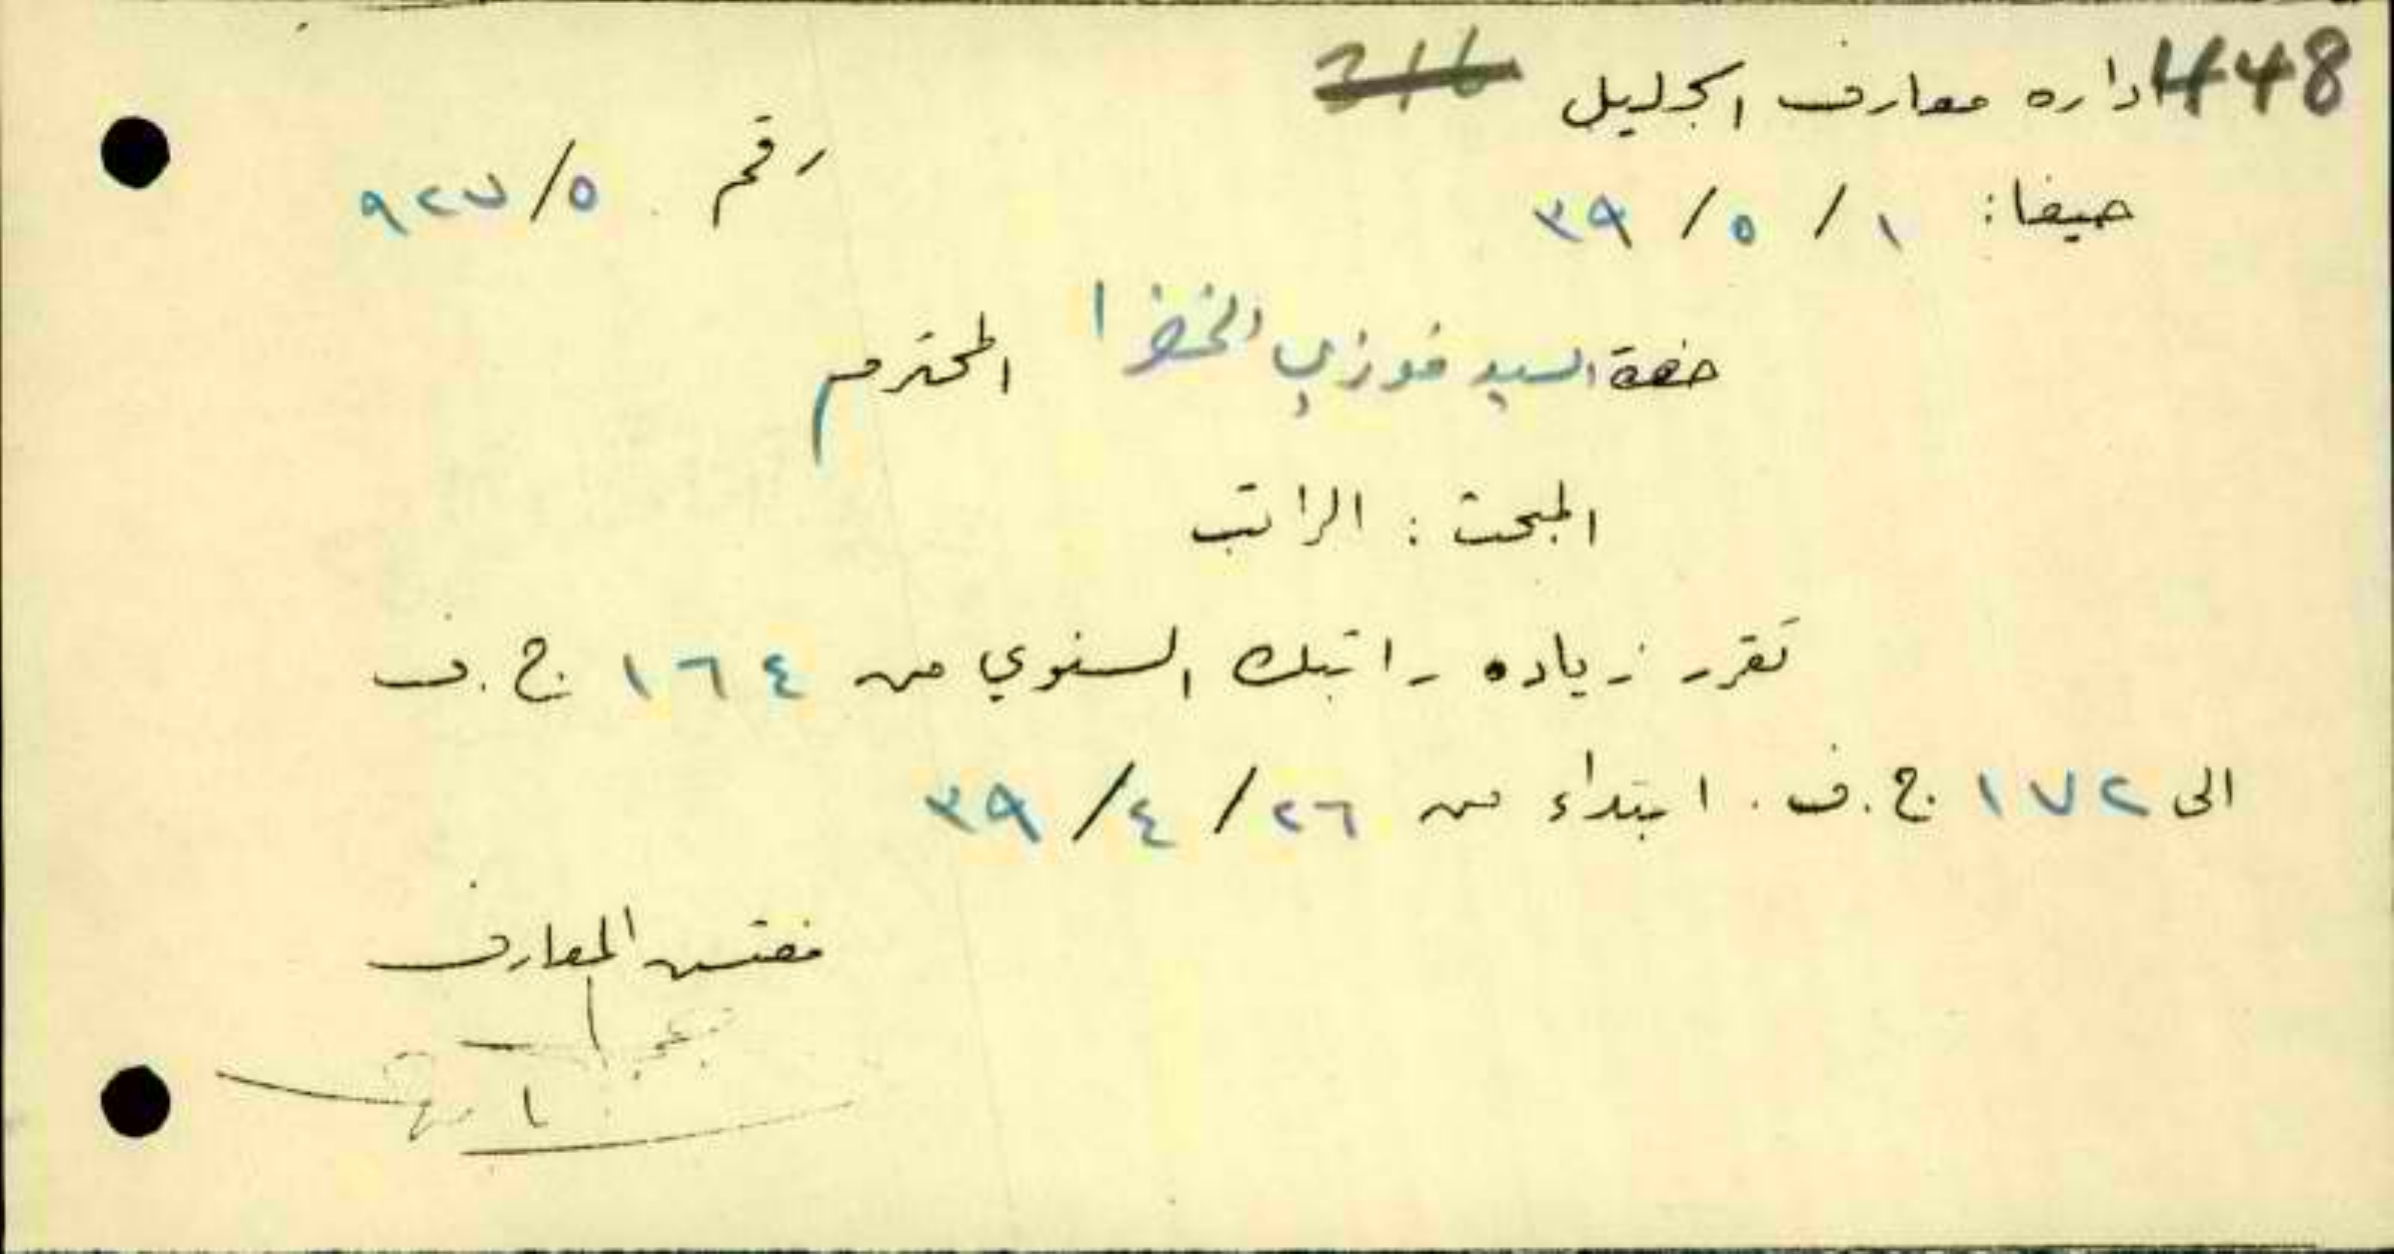 448 اداره معارف الجليل 316
حيفا: ١ / ٥ / ٣٩ رقم ٥/٩٢٧
حضرة السيد فوزي الخضرا المحترم
المبحث : الراتب
تقرر زياده راتبك السنوي من ١٦٤ ج.ف
الى ١٧٢ ج.ف. ابتداء من ٢٦/٤/٣٩
مفتش المعارف